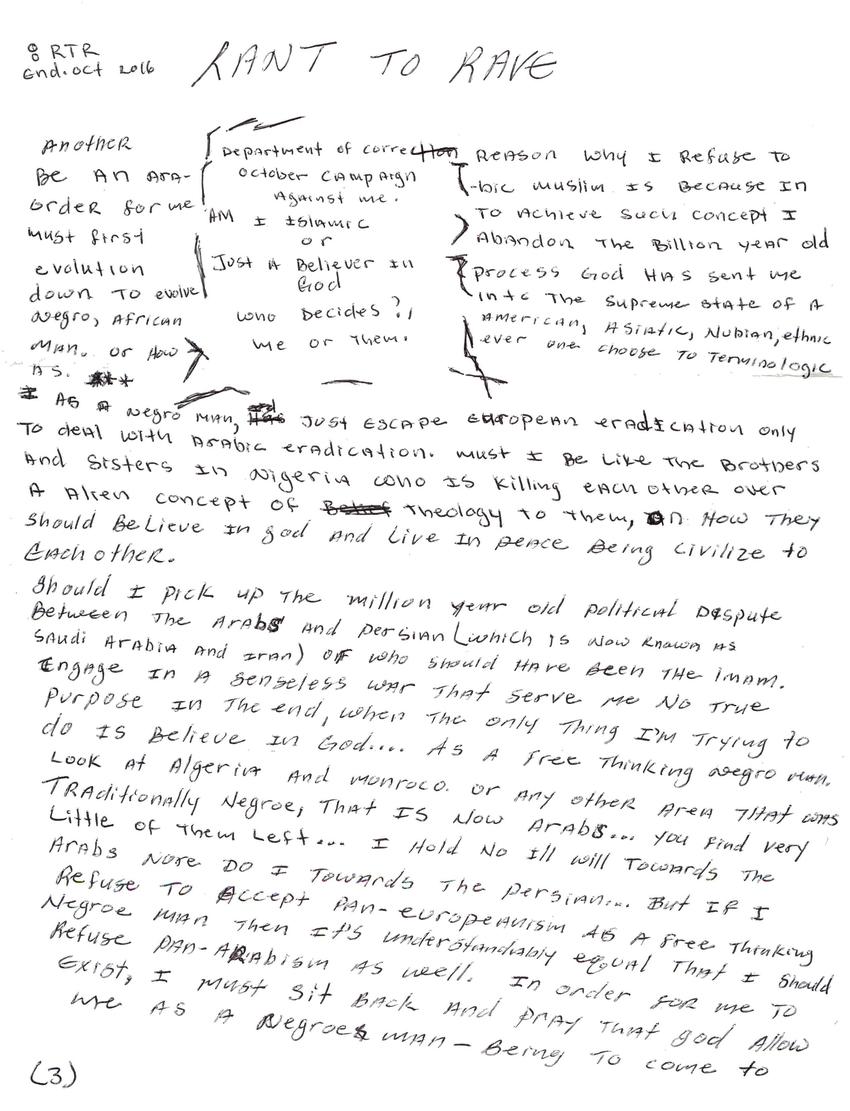 8 RTR
End. oct 2016
RANT TO RAVE
Department of correction
October Campaign
Against me.
AM I Islamic
or
Just A Believer In
God
who Decides?,
me or Them.
Another Reason why I Refuse to
Be An Ara- -bic muslim Is Because In
order for me To Achieve such concept I
must first Abandon The Billion year old
evolution process God HAS sent me
down To evolve into The supreme state of A
Negro, African American, Asiatic, Nubian, ethnic
man. or How ever one choose To Terminologic
AS. ***
I AS A Negro man, Just Escape European eradication only
To deal with Arabic eradication. must I Be Like The Brothers
And Sisters In Nigeria who Is Killing each other over
A Alien concept of theology to them, on How They
should Believe In god And Live In peace Being Civilize to
Each other.
Should I pick up The million year old political Dispute
Between The Arabs And persian (which is Now Known AS
Saudi Arabia And Iran) of who should HAve Been THe imam.
Engage In A Senseless war That Serve me No True
Purpose In The end, when The only Thing I'm Trying to
do Is Believe In God.... As A Free Thinking Negro man.
Look At Algeria And monroco. or Any other Area That was
Traditionally Negroe, That Is Now Arabs... you find very
Little of Them Left... I Hold No Ill will Towards The
Arabs Nore Do I Towards The persian... But If I
Refuse To Accept Pan-europeanism AS A Free Thinking
Negroe man Then It's understandably equal That I should
Refuse Pan-Arabism As well. In order for me To
Exist, I must Sit Back And pray That god Allow
me AS A Negroes man - Being To come to
(3)